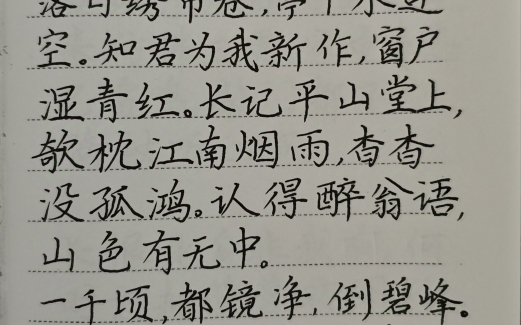 落日绣帘卷,亭下水连
空。知君为我新作,窗户
湿青红。长记平山堂上,
欹枕江南烟雨,杳杳
没孤鸿。认得醉翁语,
山色有无中。
一千顷,都镜净,倒碧峰。